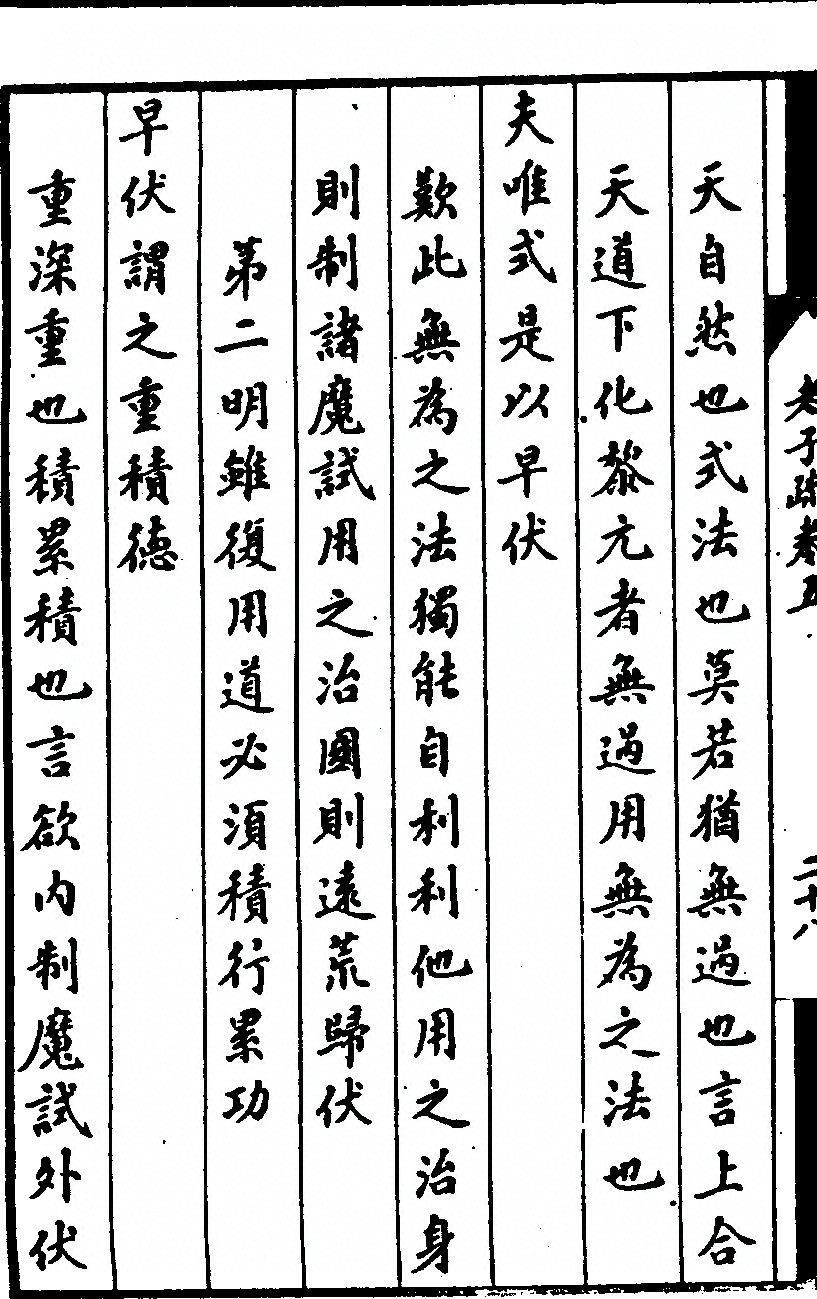 老子疏卷五
二十八
天自然也式法也莫若猶無過也言上合
天道下化黎元者無過用無為之法也
夫唯式是以早伏
歎此無為之法獨能自利利他用之治身
則制諸魔試用之治國則遠荒歸伏
第二明雖復用道必須積行累功
早伏謂之重積德
重深重也積累積也言欲內制魔試外伏